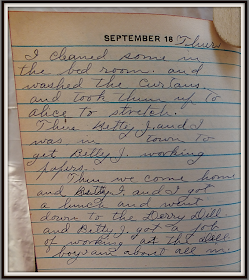 SEPTEMBER 18 Thurs
I cleaned some in
the bed room. and
washed the curtains.
and took them up to
alice to stretch.
Then Betty J. and I
was in town to
get Betty J. working
papers.
Then we come home
and Betty J. and I got
a lunch and went
down to the Derry Dell.
and Betty J. got a job
of working at the Dell
boys are above all